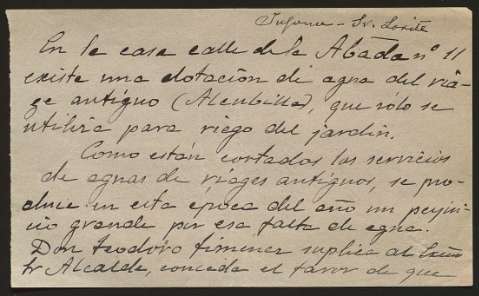 Informe - Sr. Losite
En la casa calle de la Abada nº 11
existe una dotación de agua del via-
ge antiguo (Alcubilla), que sólo se
utiliza para riego del jardín.
Como están cortados los servicios
de aguas de viages antiguos, se pro-
duce en esta época del año un perjui-
cio grande por esa falta de agua.
Don Teodoro Jimenez suplica al Excmo
Sr Alcalde, conceda el favor de que